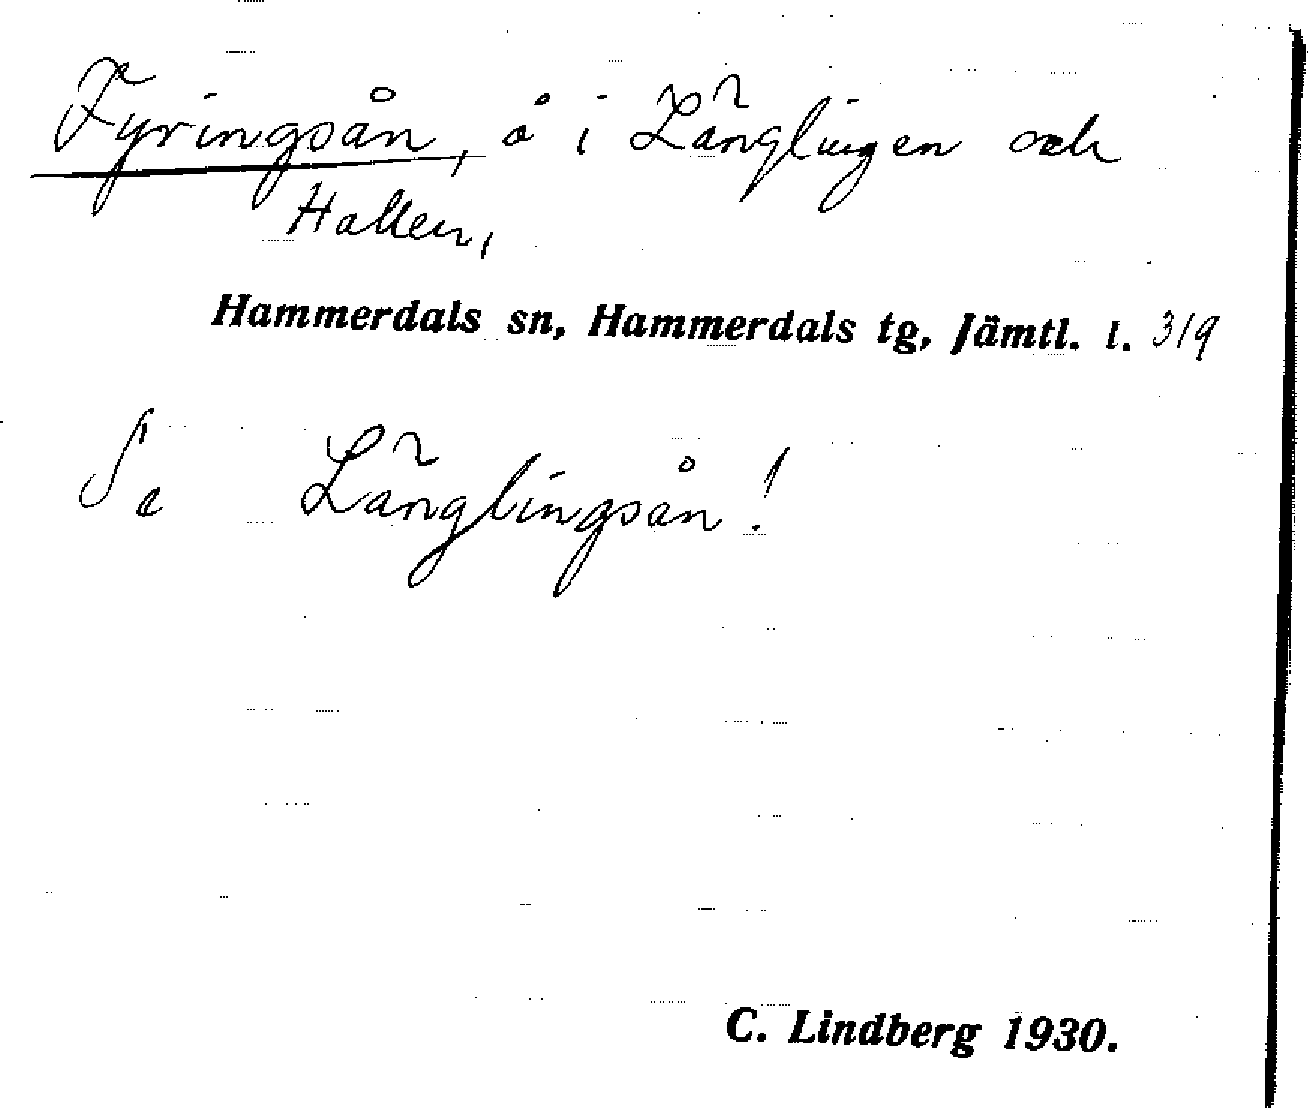 Fyringsån, å i Långlingen och
Hallen,
Hammerdals sn, Hammerdals tg, Jämtl. l. 319
Se Långlingsån!
C. Lindberg 1930.